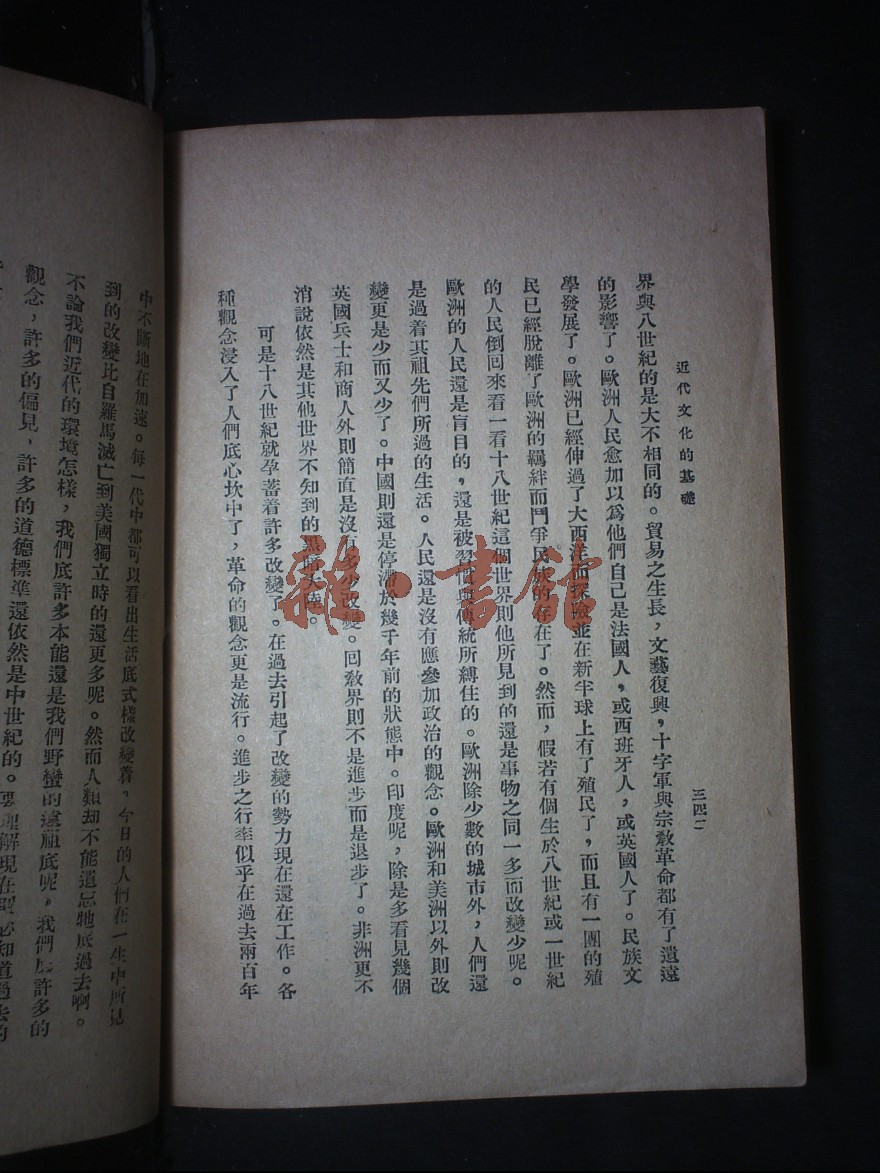 近代文化的基礎
三四二
界與八世紀的是大不相同的。貿易之生長，文藝復興，十字軍與宗教革命都有了遺遠
的影響了。歐洲人民愈加以爲他們自己是法國人，或西班牙人，或英國人了。民族文
學發展了。歐洲已經伸過了大西洋而探險並在新半球上有了殖民了，而且有一團的殖
民已經脫離了歐洲的羈絆而鬥爭民族的存在了。然而，假若有個生於八世紀或一世紀
的人民倒回來看一看十八世紀這個世界則他所見到的還是事物之同一多而改變少呢。
歐洲的人民還是盲目的，還是被習慣與傳統所縛住的。歐洲除少數的城市外，人們還
是過着其祖先們所過的生活。人民還是沒有應參加政治的觀念。歐洲和美洲以外則改
變更是少而又少了。中國則還是停滯於幾千年前的狀態中。印度呢，除是多看見幾個
英國兵士和商人外則簡直是沒有多少改變。回教界則不是進步而是退步了。非洲更不
消說依然是其他世界不知到的黑暗大陸。
可是十八世紀就孕蓄着許多改變了。在過去引起了改變的勢力現在還在工作。各
種觀念浸入了人們底心坎中了，革命的觀念更是流行。進步之行率似乎在過去兩百年
中不斷地在加速。每一代中都可以看出生活底式樣改變着。今日的人們在一生中所見
到的改變比自羅馬滅亡到美國獨立時的還更多呢。然而人類却不能遺忘牠底過去啊。
不論我們近代的環境怎樣，我們底許多本能還是我們野蠻的遠祖底呢。我們底許多的
觀念，許多的偏見，許多的道德標準還依然是中世紀的。要理解現在則必知道過去的
雜·書館